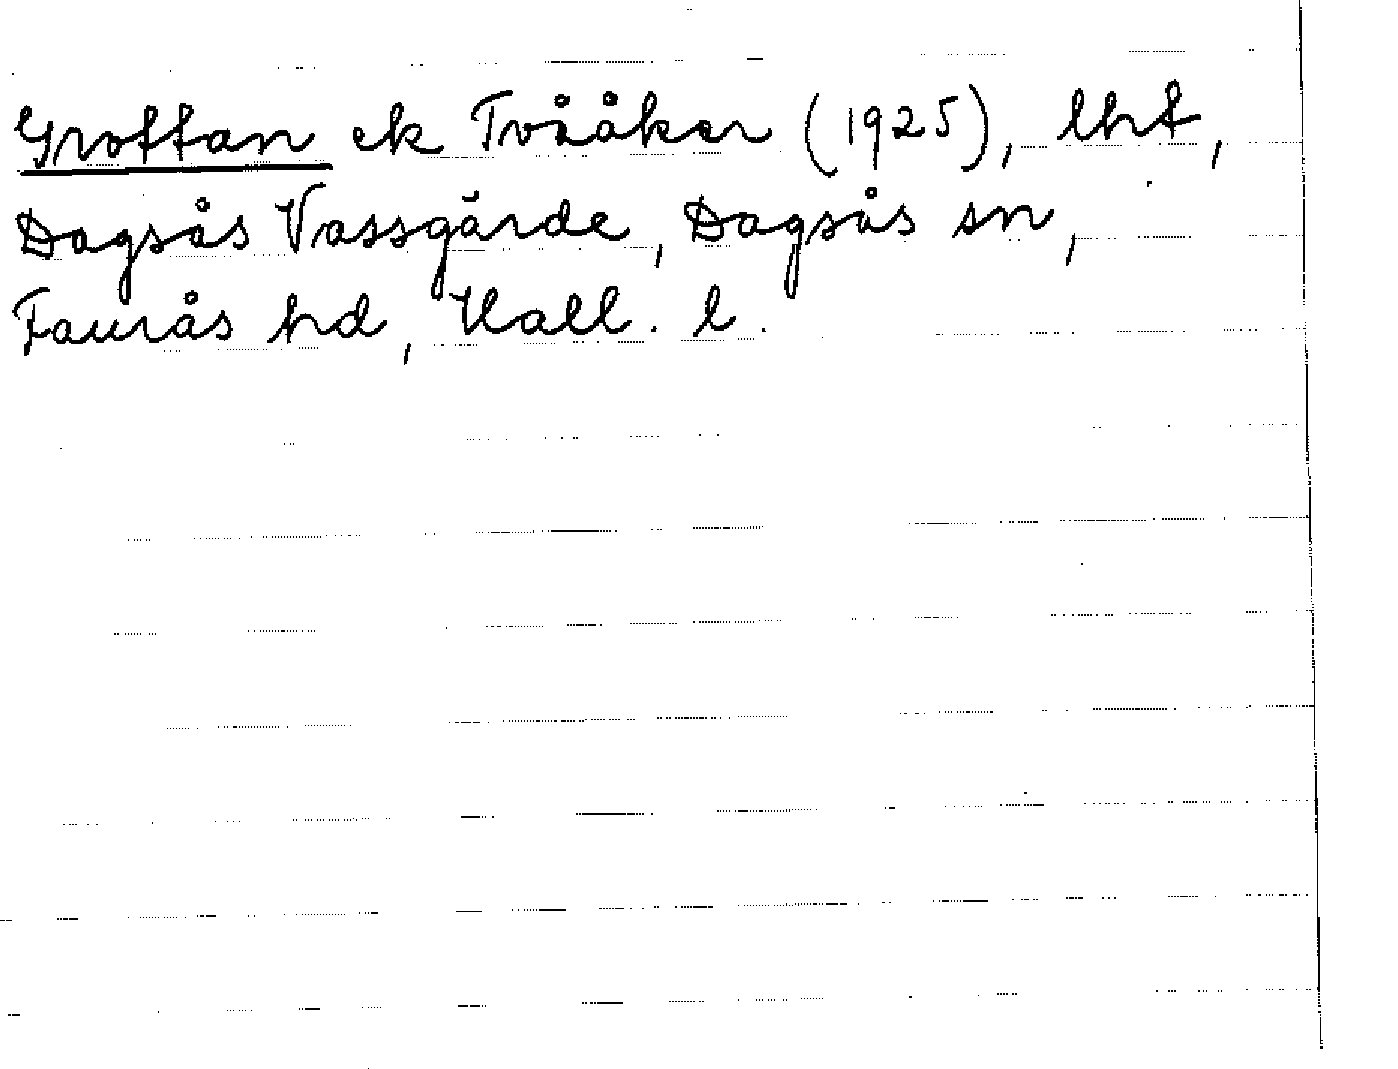 Groffan ek Tvååker (1925), lht,
Dagsås Vassgärde, Dagsås sn,
Faurås hd, Hall. l.